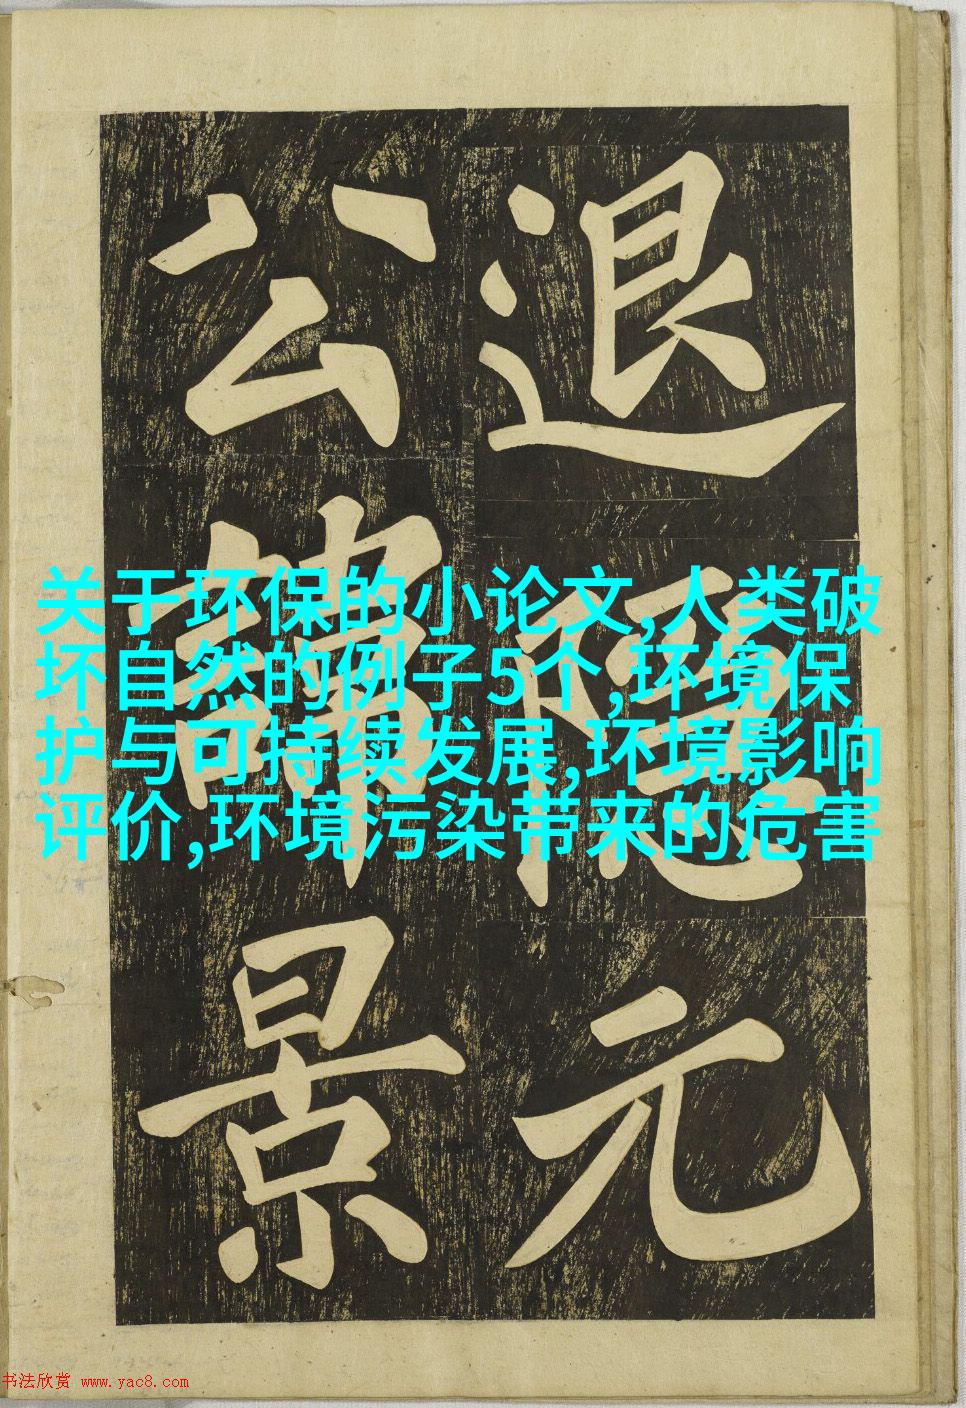 退隱元
公諱景
关于环保的小论文,人类破
坏自然的例子5个,环境保
护与可持续发展,环境影响
评价,环境污染带来的危害
书法欣赏 www.yac8.com